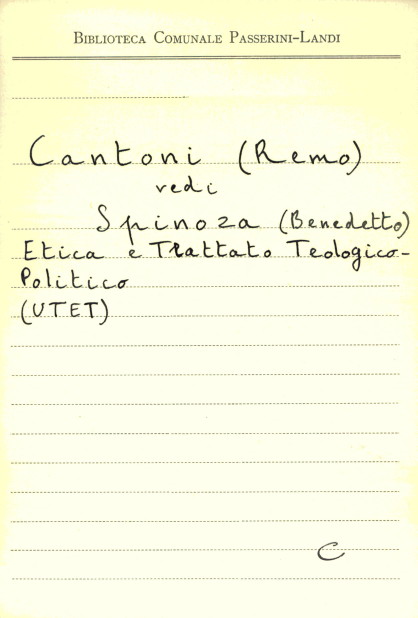 BIBLIOTECA COMUNALE PASSERINI-LANDI
Cantoni (Remo)
vedi
Spinoza (Benedetto)
Etica e Trattato Teologico-
Politico
(UTET)
C